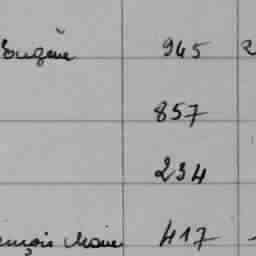 Eugène 945 2
857
234
François Marie 417